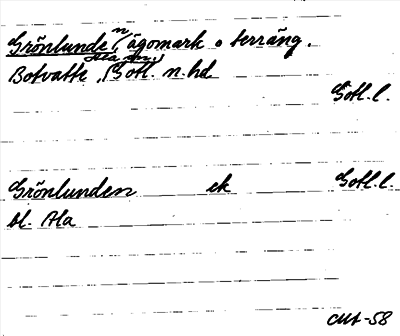 Grönlunden, ägomark o terräng.
Botvatte, Ala sn, Gotl. n. hd
Gotl. l.
Grönlunden ek Gotl. l.
bl. Ala
-58